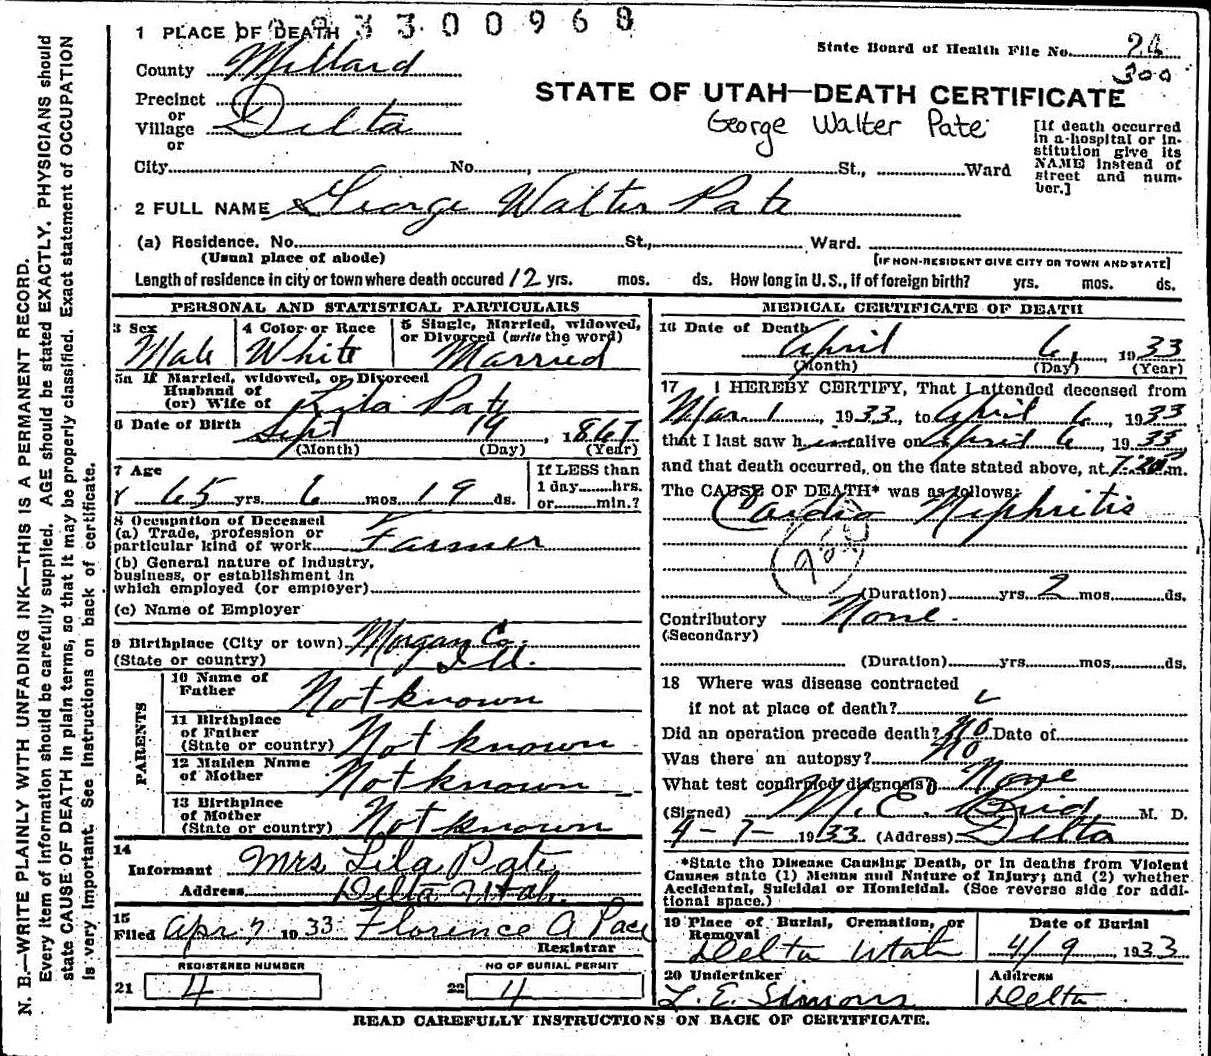 3 3 0 0 9 6 8
1 PLACE OF DEATH
State Board of Health File No. 24
300
County Millard
STATE OF UTAH—DEATH CERTIFICATE
Precinct
or
Village Delta
or
George Walter Pate
[If death occurred
in a hospital or in-
stitution give its
NAME instead of
street and num-
ber.]
City No. , St., Ward
2 FULL NAME George Walter Pate
(a) Residence. No. St., Ward.
(Usual place of abode) [IF NON-RESIDENT GIVE CITY OR TOWN AND STATE]
Length of residence in city or town where death occured 12 yrs. mos. ds. How long in U.S., if of foreign birth? yrs. mos. ds.
PERSONAL AND STATISTICAL PARTICULARS
3 Sex
Male
4 Color or Race
White
5 Single, Married, widowed,
or Divorced (write the word)
Married
5a If Married, widowed, or Divorced
Husband of
(or) Wife of Lila Pate
6 Date of Birth Sept 19, 1867
(Month) (Day) (Year)
7 Age
65 yrs. 6 mos. 19 ds.
If LESS than
1 day hrs.
or min.?
8 Occupation of Deceased
(a) Trade, profession or
particular kind of work Farmer
(b) General nature of industry,
business, or establishment in
which employed (or employer)
(c) Name of Employer
9 Birthplace (City or town) Morgan Co.
(State or country) Ill.
PARENTS
10 Name of
Father Not known
11 Birthplace
of Father
(State or country) Not known
12 Maiden Name
of Mother Not known
13 Birthplace
of Mother
(State or country) Not known
14
Informant Mrs Lila Pate
Address Delta Utah.
15
Filed Apr 7 1933 Florence A Pace
Registrar
REGISTERED NUMBER
21 4
NO OF BURIAL PERMIT
22 4
MEDICAL CERTIFICATE OF DEATH
16 Date of Death
April 6, 1933
(Month) (Day) (Year)
17 I HEREBY CERTIFY, That I attended deceased from
Mar. 1, 1933, to April 6, 1933
that I last saw him alive on April 6, 1933
and that death occurred, on the date stated above, at m.
The CAUSE OF DEATH* was as follows:
Cardio Nephritis
(Duration) yrs. 2 mos. ds.
Contributory None.
(Secondary)
(Duration) yrs. mos. ds.
18 Where was disease contracted
if not at place of death?
Did an operation precede death? No Date of
Was there an autopsy? No
What test confirmed diagnosis? None
(Signed) M. E. Bird M. D.
4-7- 1933 (Address) Delta
*State the Disease Causing Death, or in deaths from Violent
Causes state (1) Means and Nature of Injury; and (2) whether
Accidental, Suicidal or Homicidal. (See reverse side for addi-
tional space.)
19 Place of Burial, Cremation, or
Removal
Delta Utah
Date of Burial
4/9 1933
20 Undertaker
L. E. Simons
Address
Delta
READ CAREFULLY INSTRUCTIONS ON BACK OF CERTIFICATE.
N. B.—WRITE PLAINLY WITH UNFADING INK—THIS IS A PERMANENT RECORD.
Every item of information should be carefully supplied. AGE should be stated EXACTLY. PHYSICIANS should
state CAUSE OF DEATH in plain terms, so that it may be properly classified. Exact statement of OCCUPATION
is very important. See instructions on back of certificate.